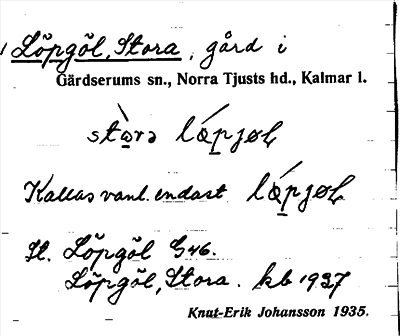 Löpgöl, Stora, gård i
Gärdserums sn., Norra Tjusts hd., Kalmar l.
Kallas vanl. endast
St. Löpgöl G 46.
Löpgöl, Stora. kb 1927
Knut-Erik Johansson 1935.